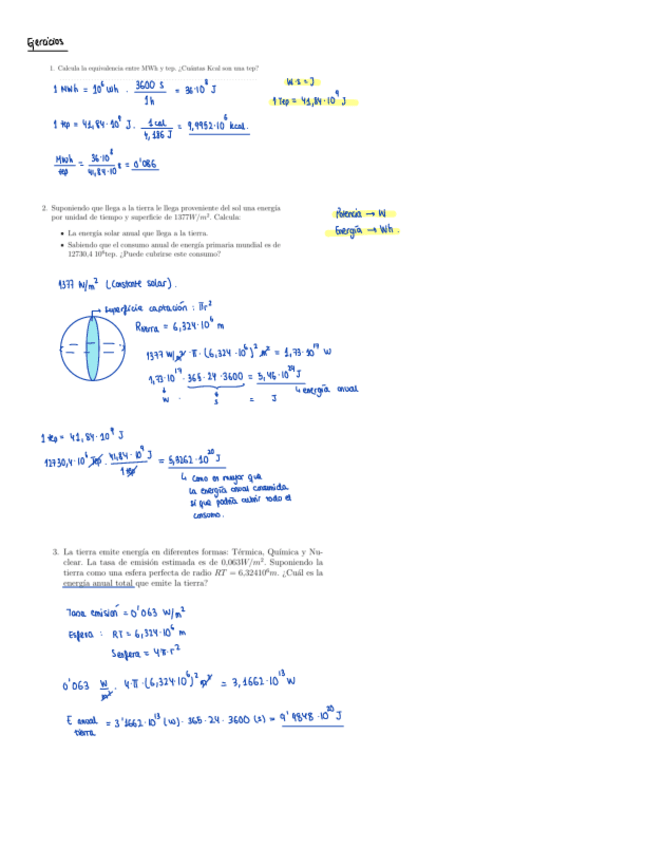 Ejercicios
1. Calcula la equivalencia entre MWh y tep. ¿Cuántas Kcal son una tep?
1 MWh = 10⁶ Wh · 3600 s / 1h = 36·10⁸ J
W·s = J
1 Tep = 41,84·10⁹ J
1 tep = 41,84·10⁹ J · 1 cal / 4,186 J = 9,9952·10⁶ kcal.
MWh / tep = 36·10⁸ / 41,84·10⁹ = 0'086
2. Suponiendo que llega a la tierra le llega proveniente del sol una energía
por unidad de tiempo y superficie de 1377W/m². Calcula:
Potencia → W
Energía → Wh.
• La energía solar anual que llega a la tierra.
• Sabiendo que el consumo anual de energía primaria mundial es de
12730,4 10⁶tep. ¿Puede cubrirse este consumo?
1377 W/m² (constante solar).
superficie captación : πr²
Rtierra = 6,324·10⁶ m
1377 W/m² · π · (6,324·10⁶)² m² = 1,73·10¹⁷ W
1,73·10¹⁷ · 365·24·3600 = 5,46·10²⁴ J
↳ energía anual
W · s = J
1 tep = 41,84·10⁹ J
12730,4·10⁶ tep · 41,84·10⁹ J / 1 tep = 5,3262·10²⁰ J
↳ como es mayor que
la energía anual consumida
sí que podría cubrir todo el
consumo.
3. La tierra emite energía en diferentes formas: Térmica, Química y Nu-
clear. La tasa de emisión estimada es de 0,063W/m². Suponiendo la
tierra como una esfera perfecta de radio RT = 6,32410⁶m. ¿Cuál es la
energía anual total que emite la tierra?
Tasa emisión = 0'063 W/m²
Esfera : RT = 6,324·10⁶ m
Sesfera = 4π·r²
0'063 W/m² · 4·π·(6,324·10⁶)² m² = 3,1662·10¹³ W
E anual tierra = 3'1662·10¹³ (W) · 365·24·3600 (s) = 9'9848·10²⁰ J